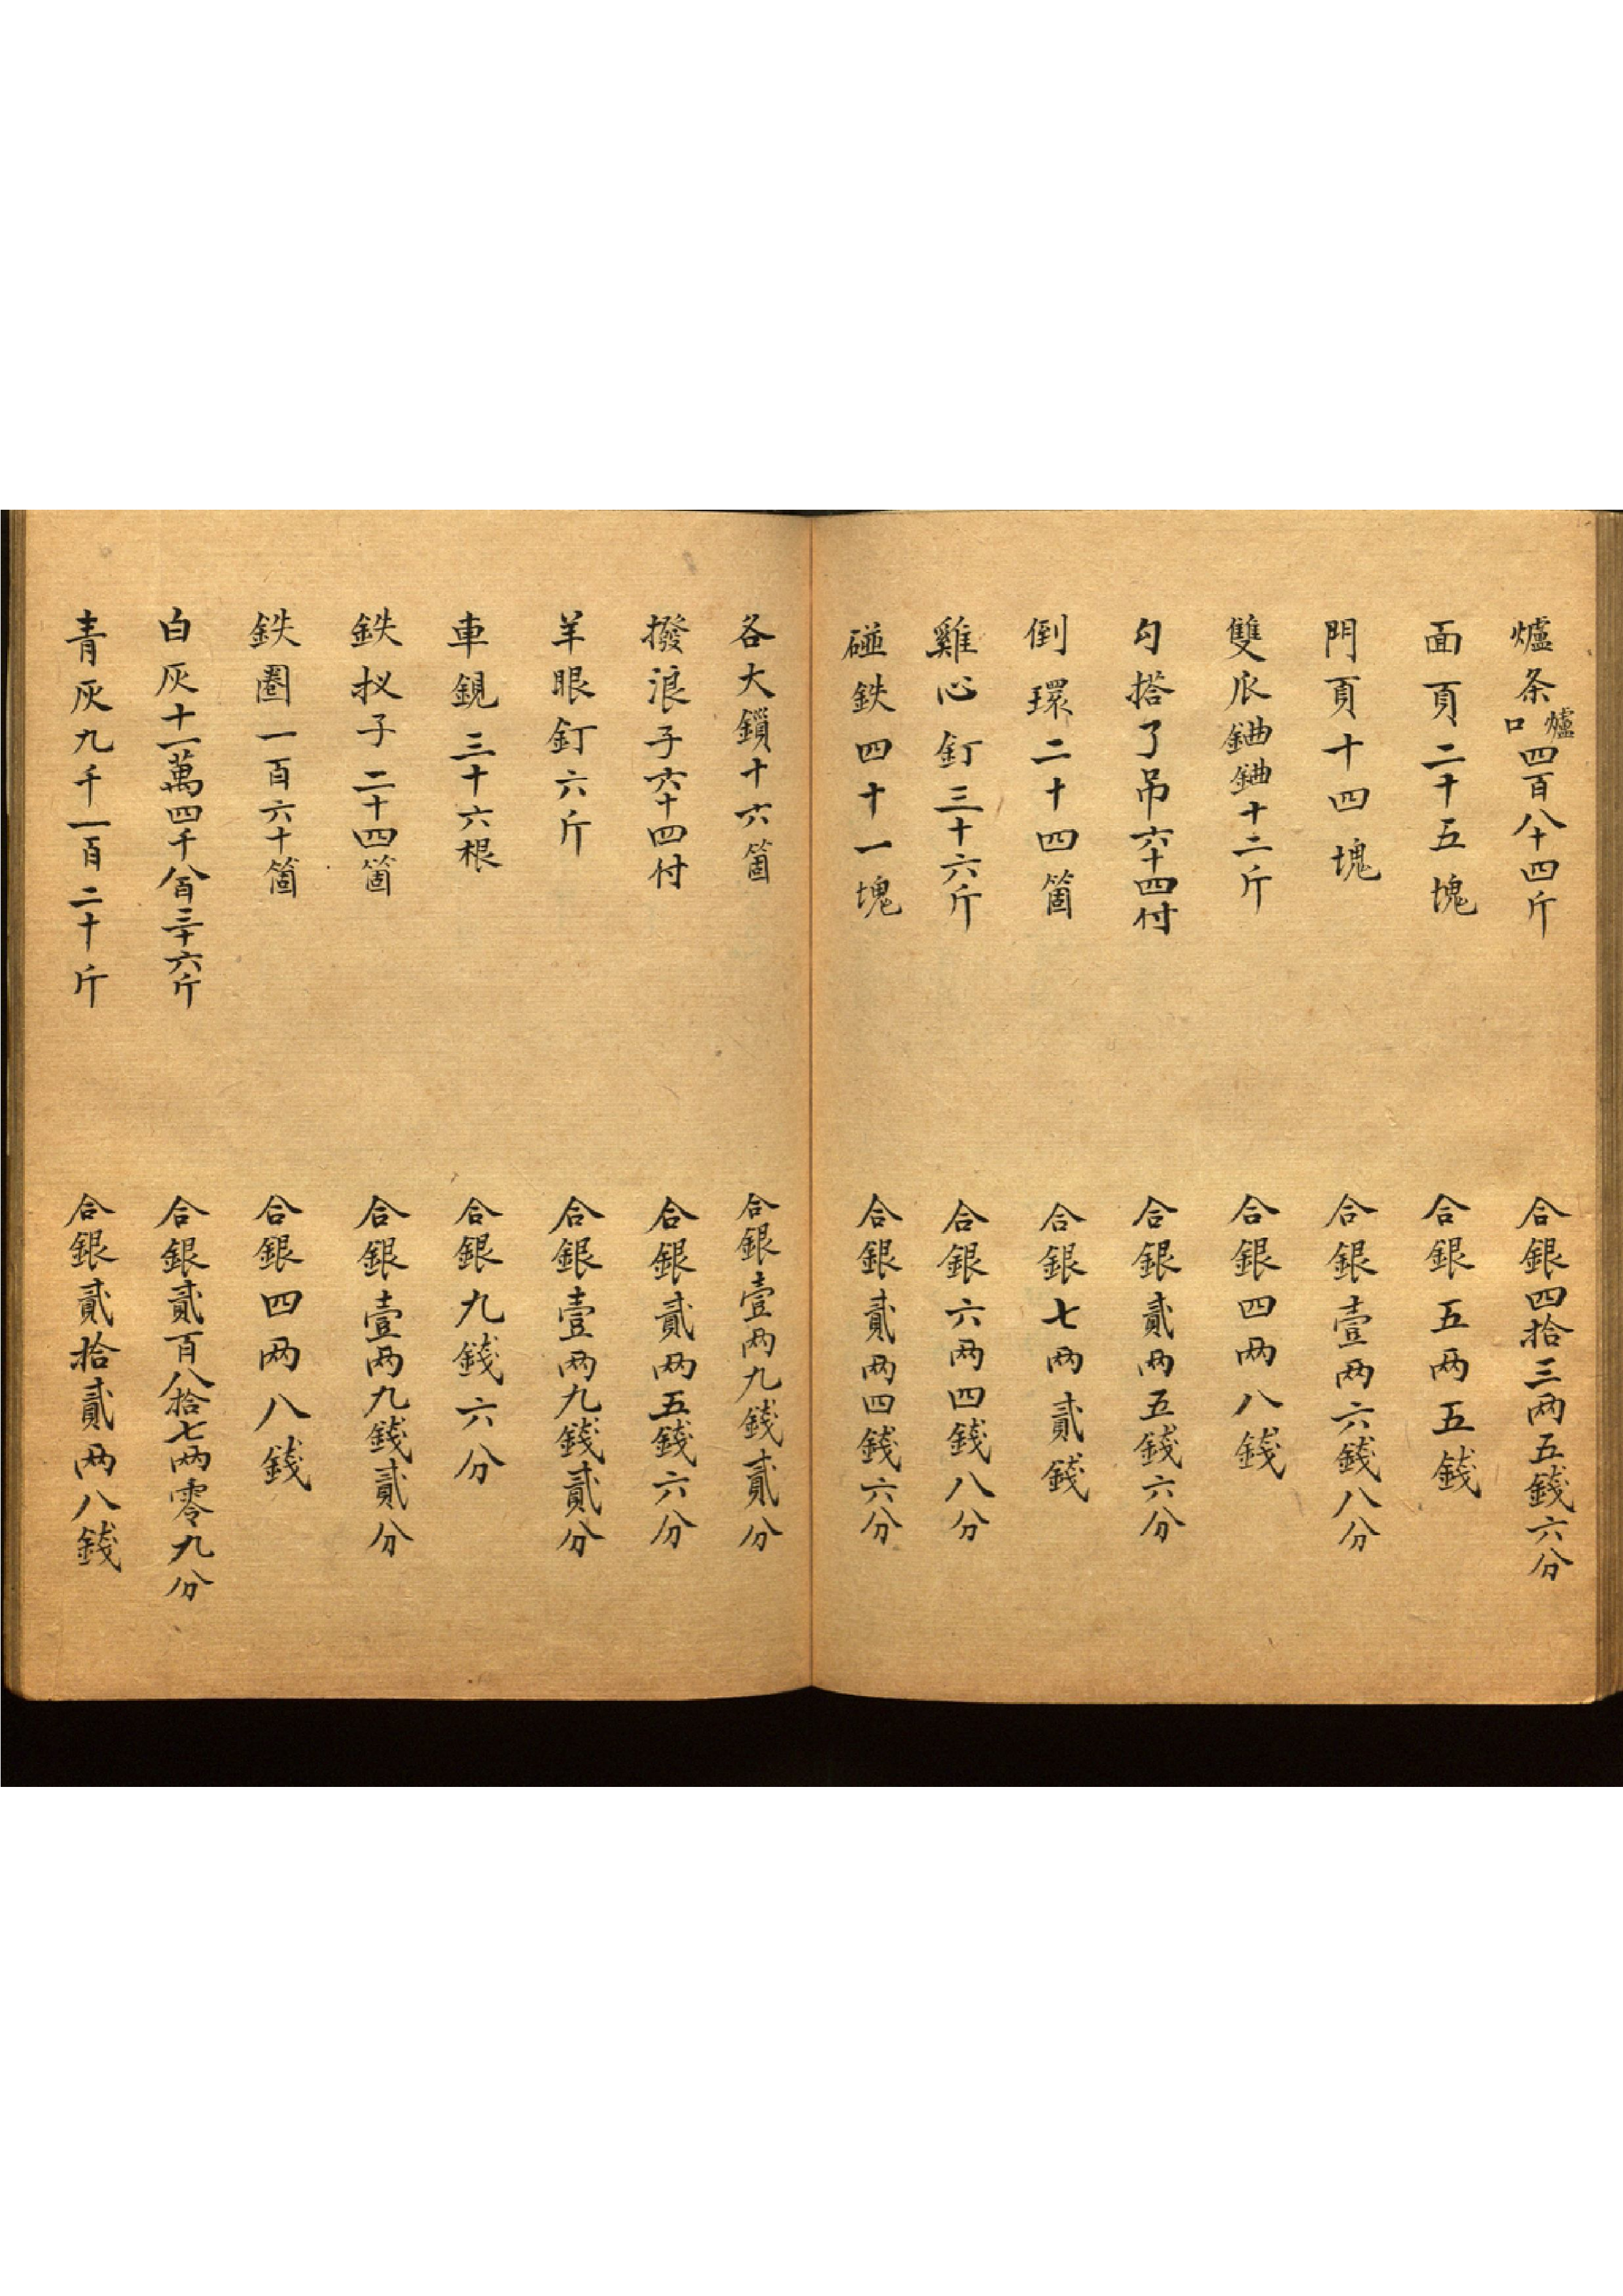 爐条爐口四百八十四斤　合銀四拾三两五錢六分
面頁二十五塊　合銀五两五錢
門頁十四塊　合銀壹两六錢八分
雙爪鈾鈾十二斤　合銀四两八錢
勾搭了吊六十四付　合銀貳两五錢六分
倒環二十四箇　合銀七两貳錢
雞心釘三十六斤　合銀六两四錢八分
碰鉄四十一塊　合銀貳两四錢六分
各大鎖十六箇　合銀壹两九錢貳分
撥浪子六十四付　合銀貳两五錢六分
羊眼釘六斤　合銀壹两九錢貳分
車鋧三十六根　合銀九錢六分
鉄扠子二十四箇　合銀壹两九錢貳分
鉄圈一百六十箇　合銀四两八錢
白灰十一萬四千八百三十六斤　合銀貳百八拾七两零九分
青灰九千一百二十斤　合銀貳拾貳两八錢